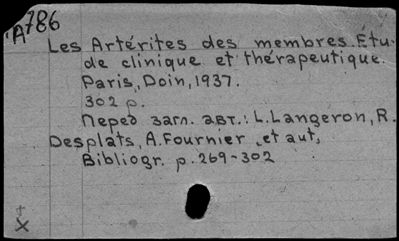 A786
Les Artérites des membres. Étu-
de clinique et thérapeutique.
Paris, Doin, 1937.
302 p.
Перед загл. авт.: L. Langeron, R.
Desplats, A. Fournier et aut,
Bibliogr. p. 269-302
+
X